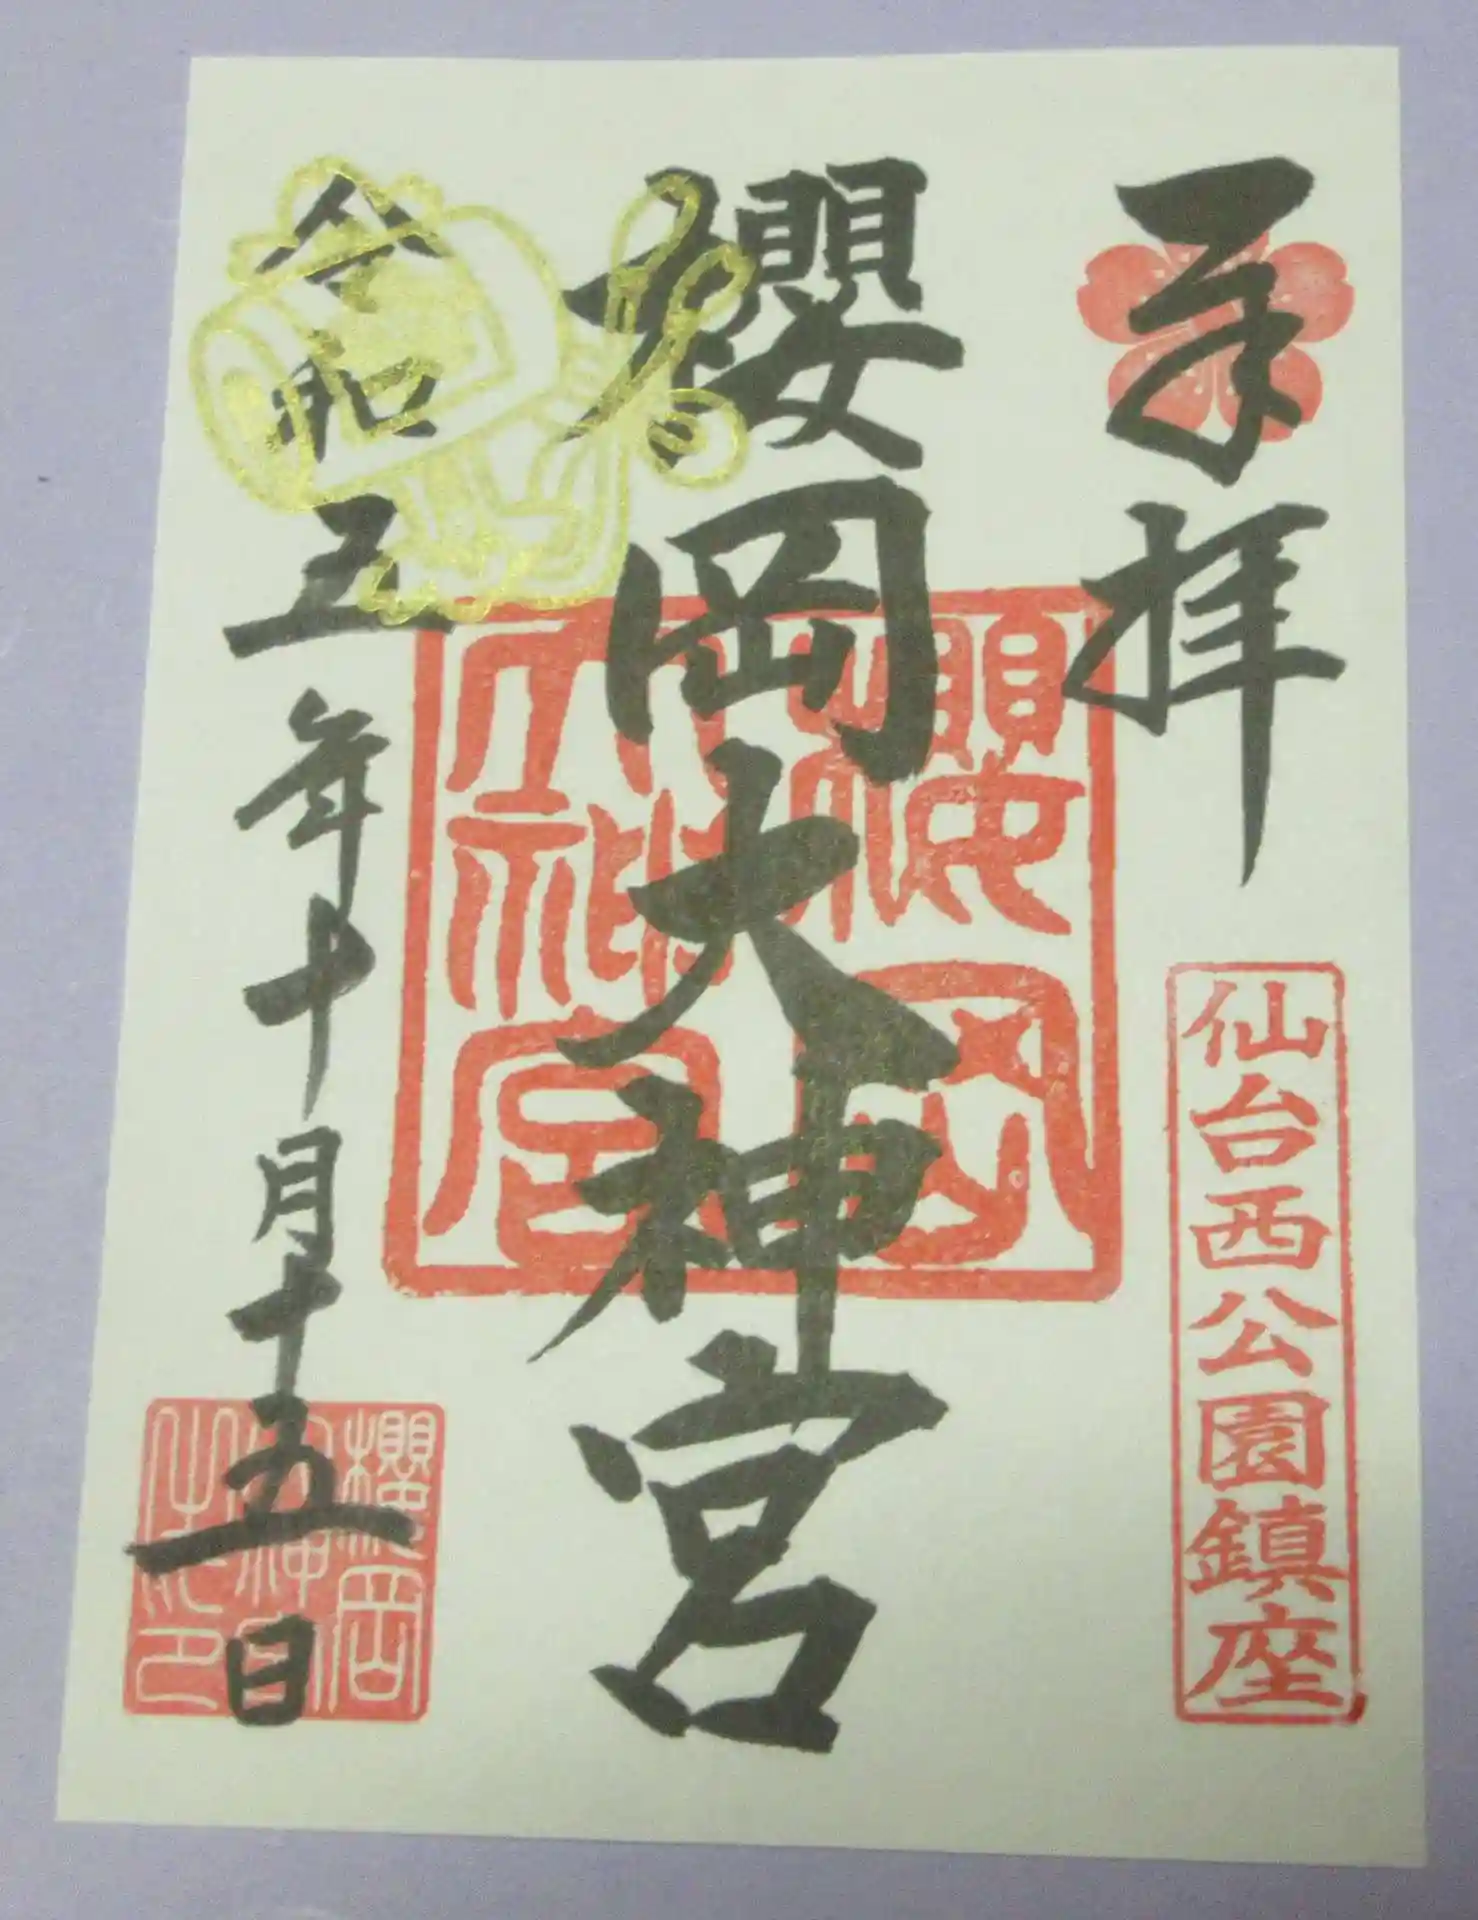 奉拝
仙台西公園鎮座
櫻岡大神宮
櫻岡
大神宮
令和五年十月十五日
櫻岡
大神宮
之印